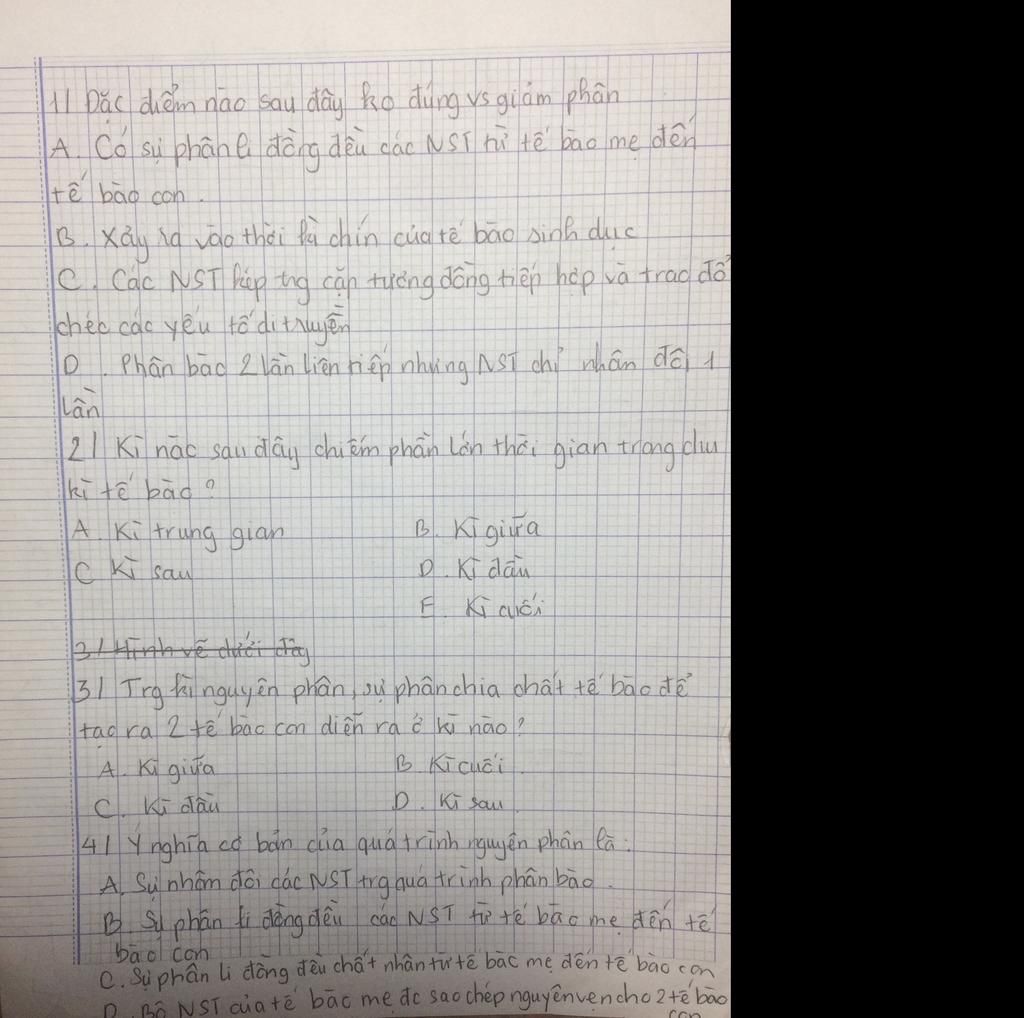 1/ Đặc điểm nào sau đây ko đúng vs giảm phân
A. Có sự phân li đồng đều các NST từ tế bào mẹ đến
tế bào con.
B. Xảy ra vào thời kì chín của tế bào sinh dục
C. Các NST kép trg cặp tương đồng tiếp hợp và trao đổ
chéo các yếu tố di truyền
D. Phân bào 2 lần liên tiếp nhưng NST chỉ nhân đôi 1
lần
2/ Kì nào sau đây chiếm phần lớn thời gian trong chu
kì tế bào?
A. Kì trung gian B. Kì giữa
C Kì sau D. Kì đầu
E. Kì cuối
3/ Hình vẽ dưới đây
3/ Trg kì nguyên phân, sự phân chia chất tế bào để
tạo ra 2 tế bào con diễn ra ở kì nào?
A. Kì giữa B. Kì cuối
C. Kì đầu D. Kì sau
4/ Ý nghĩa cơ bản của quá trình nguyên phân là:
A. Sự nhâm đôi các NST trg quá trình phân bào.
B. Sự phân li đồng đều các NST từ tế bào mẹ đến tế
bào con
C. Sự phân li đồng đều chất nhân từ tế bào mẹ đến tế bào con
D. Bộ NST của tế bào mẹ đc sao chép nguyên vẹn cho 2 tế bào
con